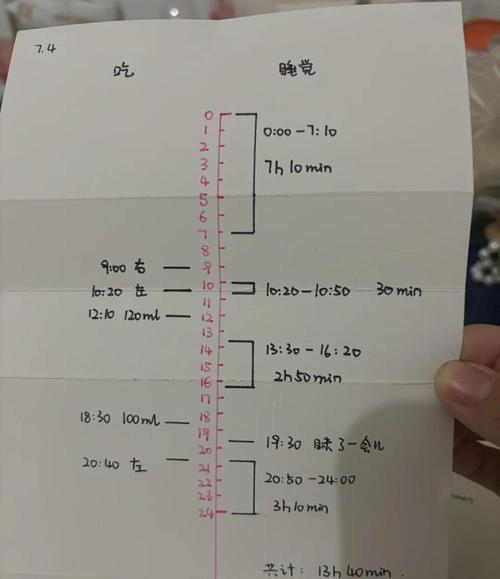 7.4
吃 睡觉
0
1
2
3
4
5
6
7
8
9
10
11
12
13
14
15
16
17
18
19
20
21
22
23
24
0:00-7:10
7h 10min
9:00 右
10:20 左
10:20-10:50 30min
12:10 120ml
13:30-16:20
2h 50min
18:30 100ml
19:30 眯了一会儿
20:40 左
20:50-24:00
3h10min
共计: 13h 40min.